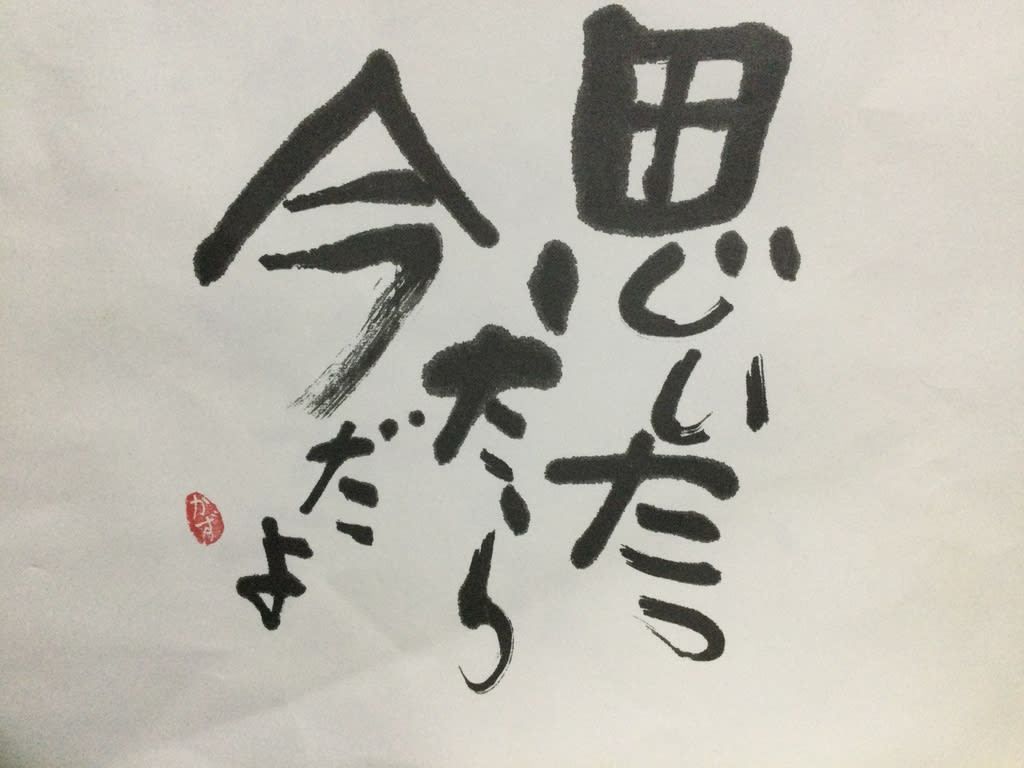 思いたっ
たら
今だよ
かず